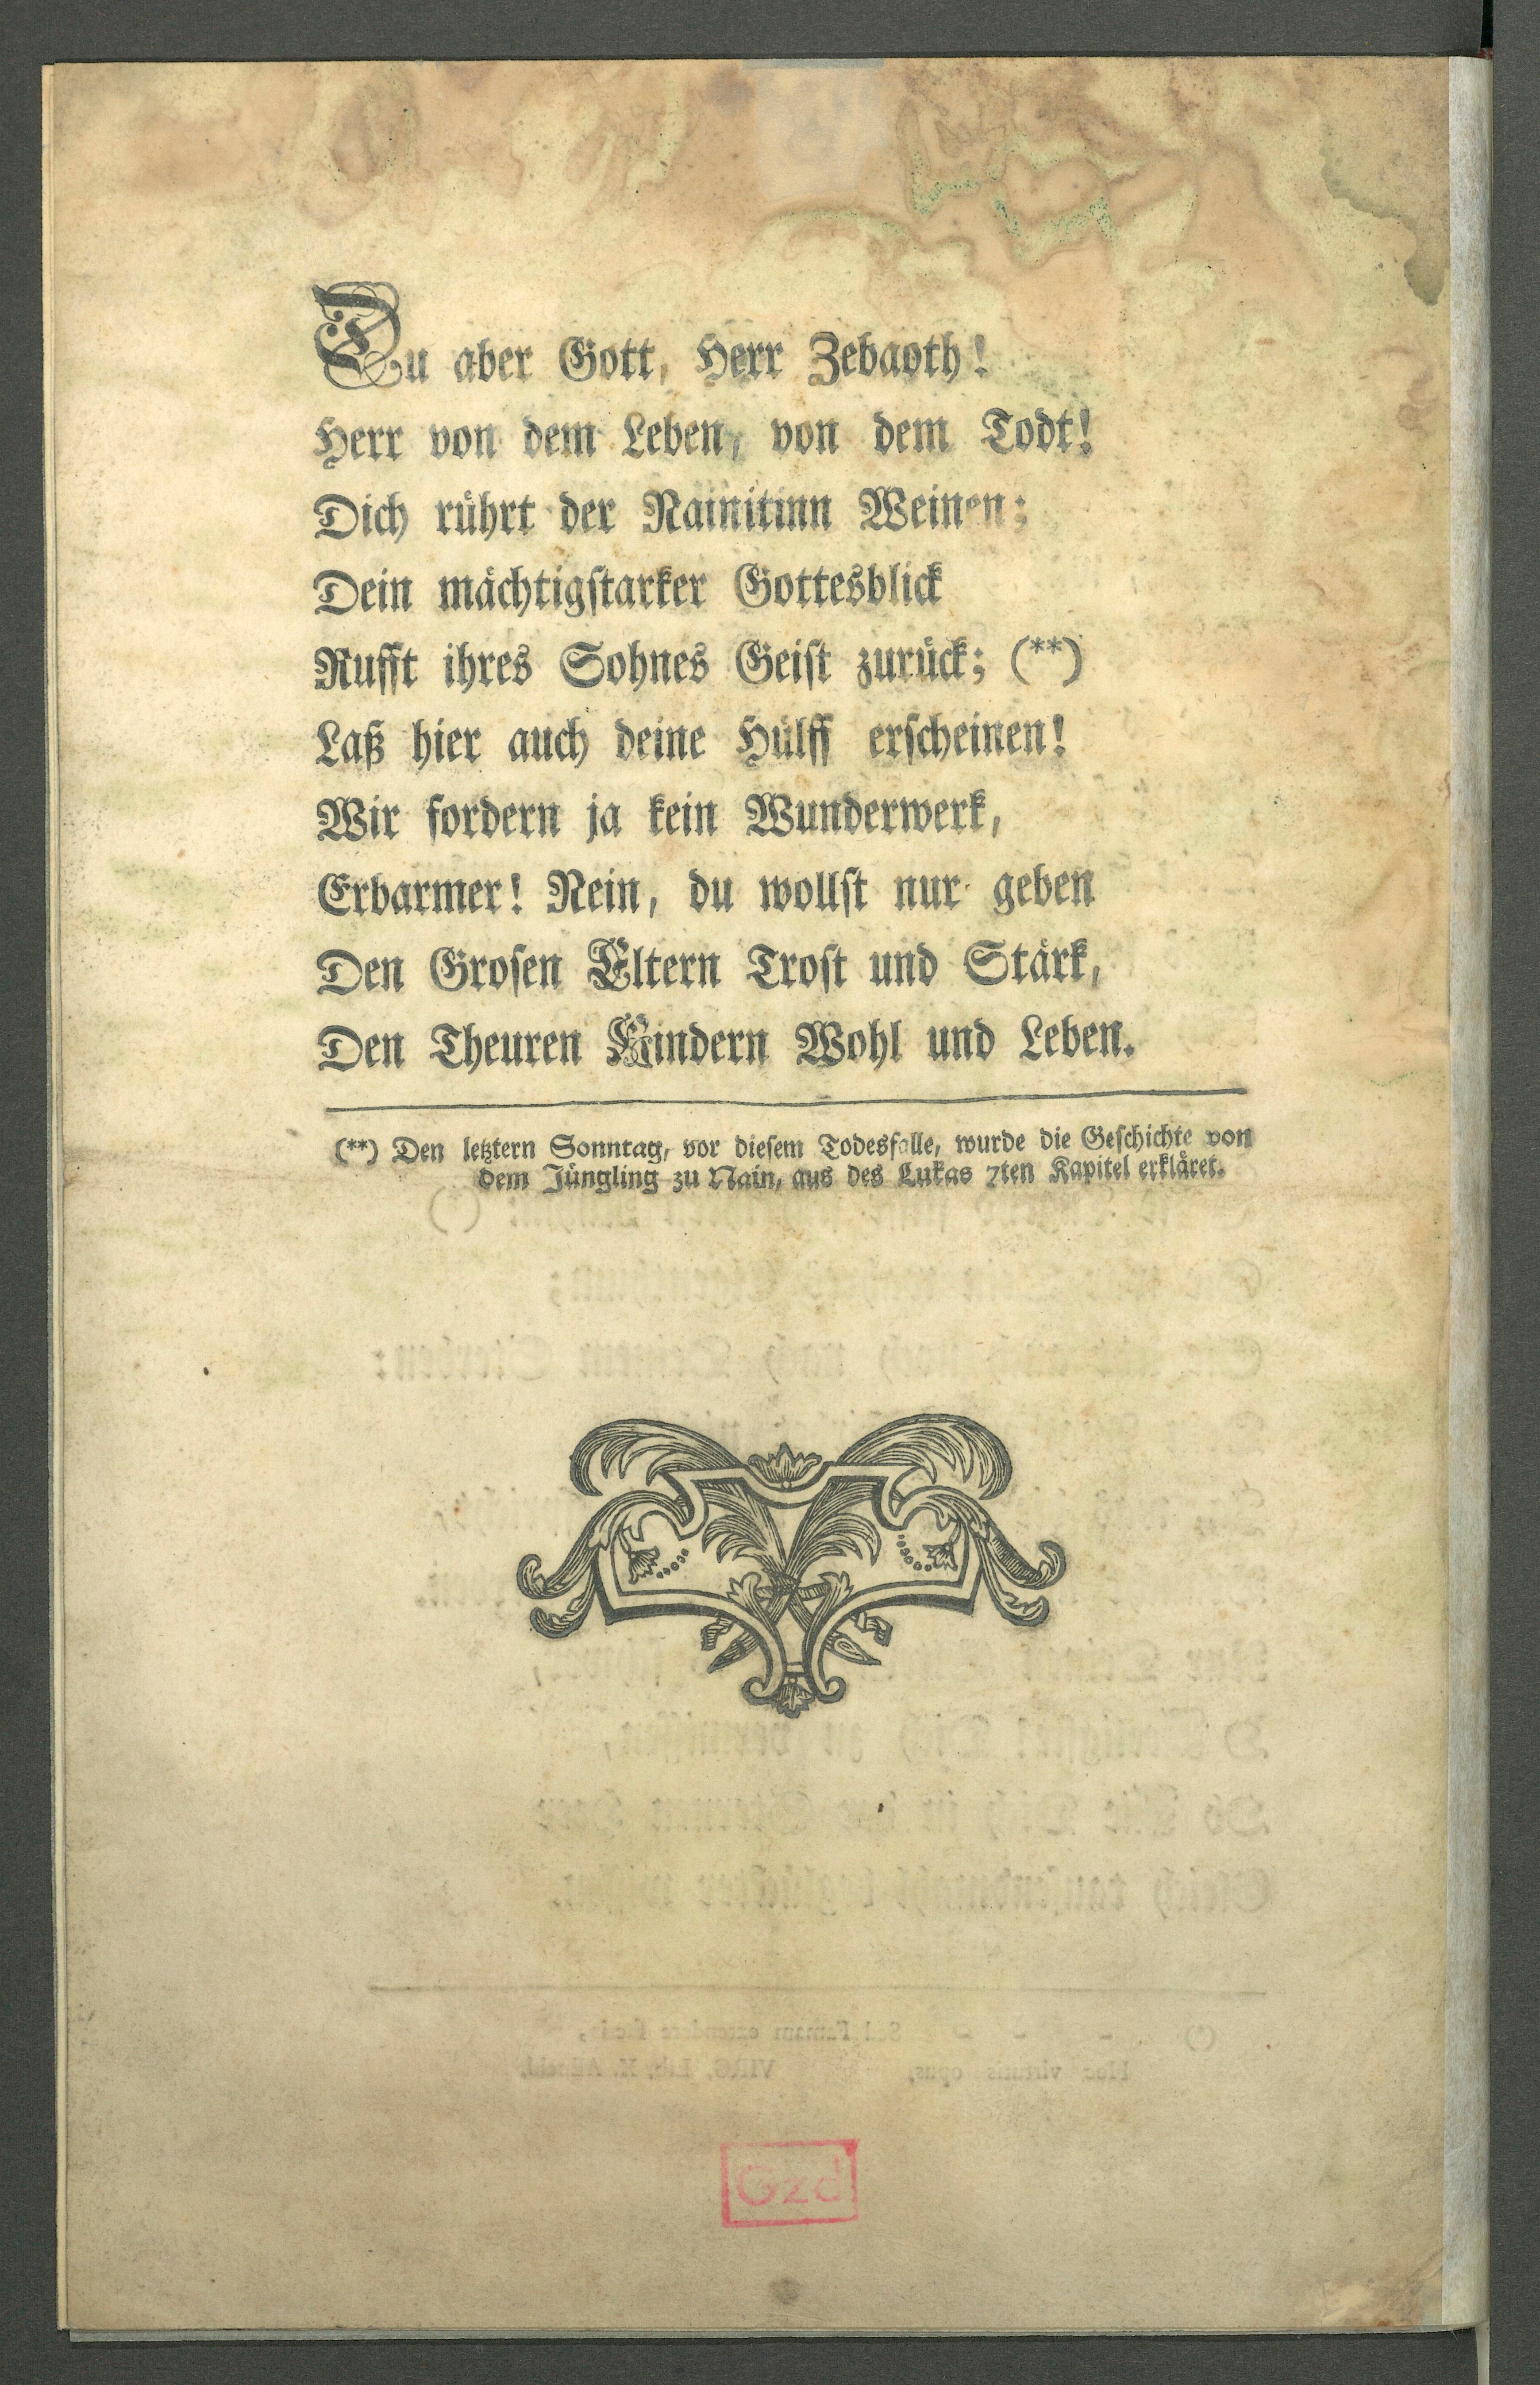 Du aber Gott, Herr Zebaoth!
Herr von dem Leben, von dem Todt!
Dich rührt der Nainitinn Weinen;
Dein mächtigstarker Gottesblick
Rufft ihres Sohnes Geist zurück; (**)
Laß hier auch deine Hülff erscheinen!
Wir fordern ja kein Wunderwerk,
Erbarmer! Nein, du wollst nur geben
Den Grosen Eltern Trost und Stärk,
Den Theuren Kindern Wohl und Leben.
(**) Den letztern Sonntag, vor diesem Todesfalle, wurde die Geschichte von
dem Jüngling zu Nain, aus des Lukas 7ten Kapitel erkläret.
Gzd